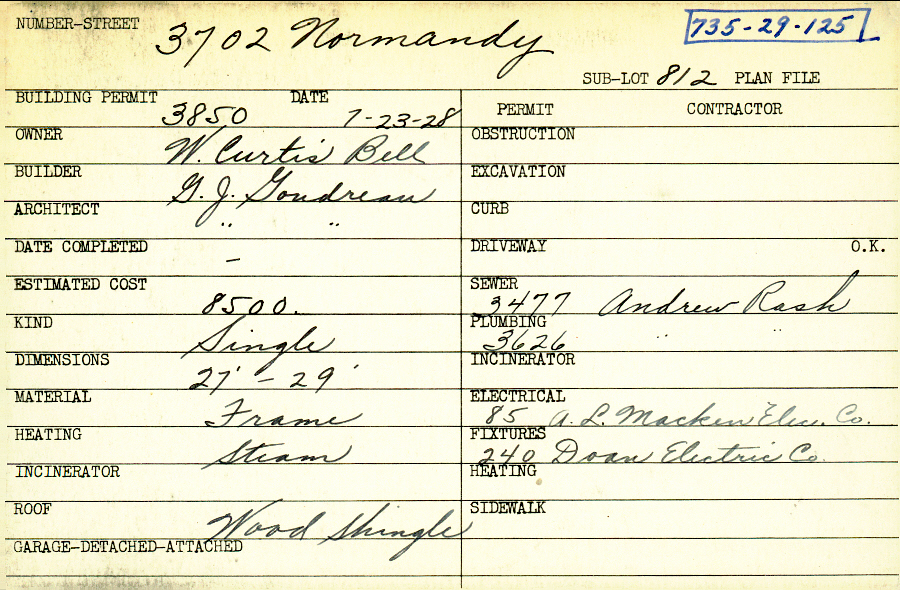 NUMBER-STREET 3702 Normandy 735-29-125
SUB-LOT 812 PLAN FILE
BUILDING PERMIT 3850 DATE 7-23-28 PERMIT CONTRACTOR
OWNER W. Curtis Bell OBSTRUCTION
BUILDER G. J. Goudreau EXCAVATION
ARCHITECT " " CURB
DATE COMPLETED - DRIVEWAY O.K.
ESTIMATED COST 8500. SEWER 3477 Andrew Rash
KIND Single PLUMBING 3626 " "
DIMENSIONS 27' - 29' INCINERATOR
MATERIAL Frame ELECTRICAL 85 A. L. Elec. Co.
HEATING Steam FIXTURES 240 Doan Electric Co.
INCINERATOR HEATING
ROOF Wood Shingle SIDEWALK
GARAGE-DETACHED-ATTACHED